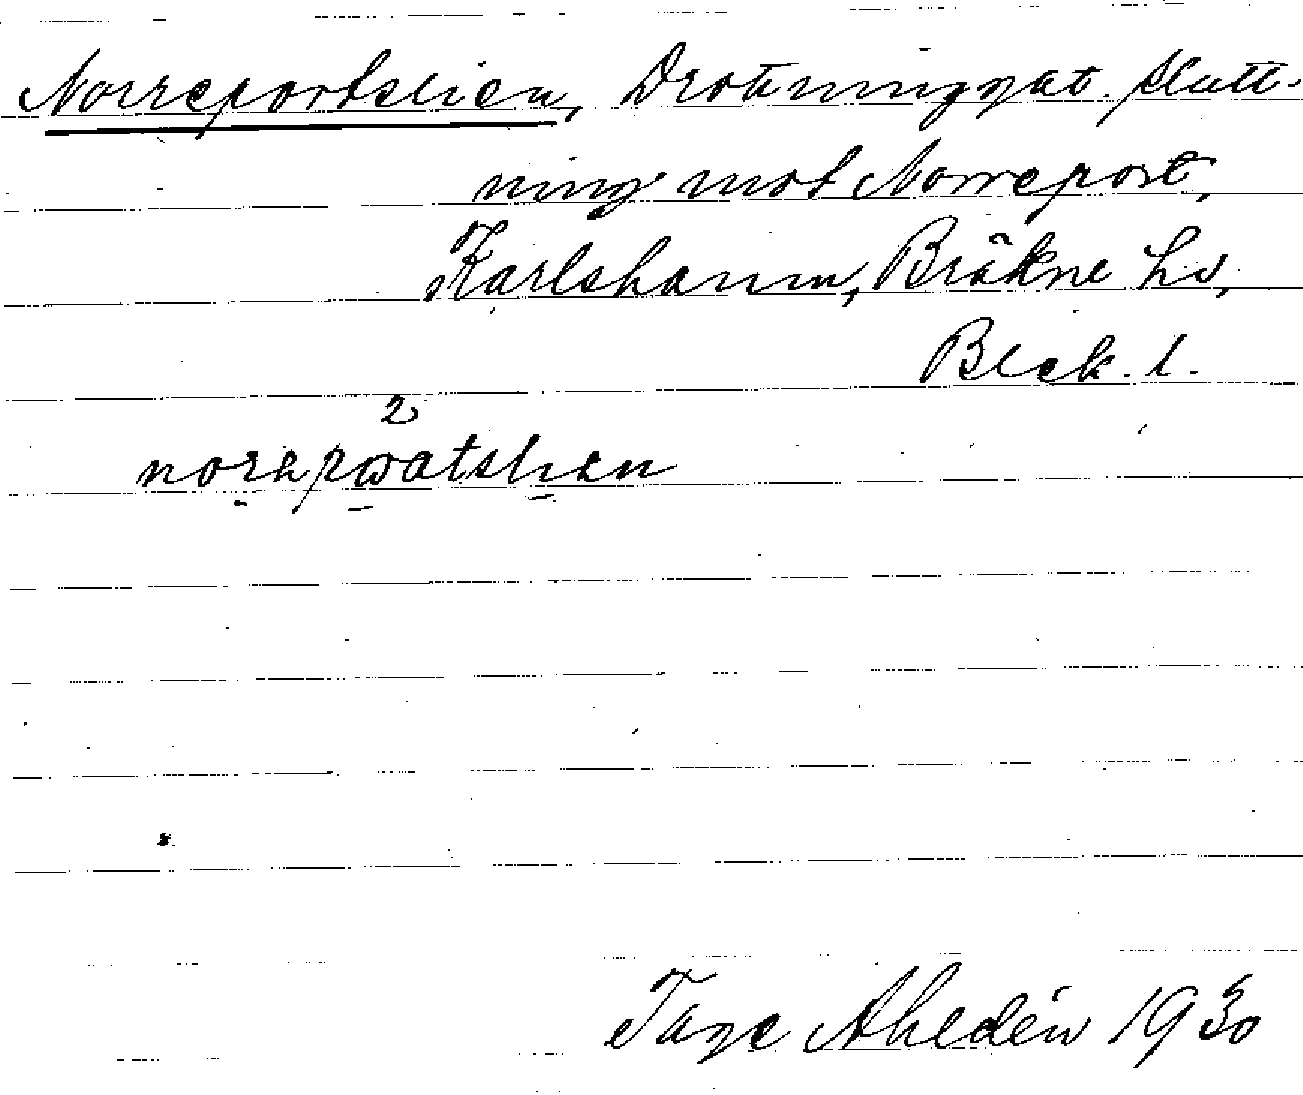 Norreportslien, Drotninggat. slutt-
ning mot Norreport,
Karlshamn, Bräkne hd,
Blek. l.
2
Tage Ahldén 1930